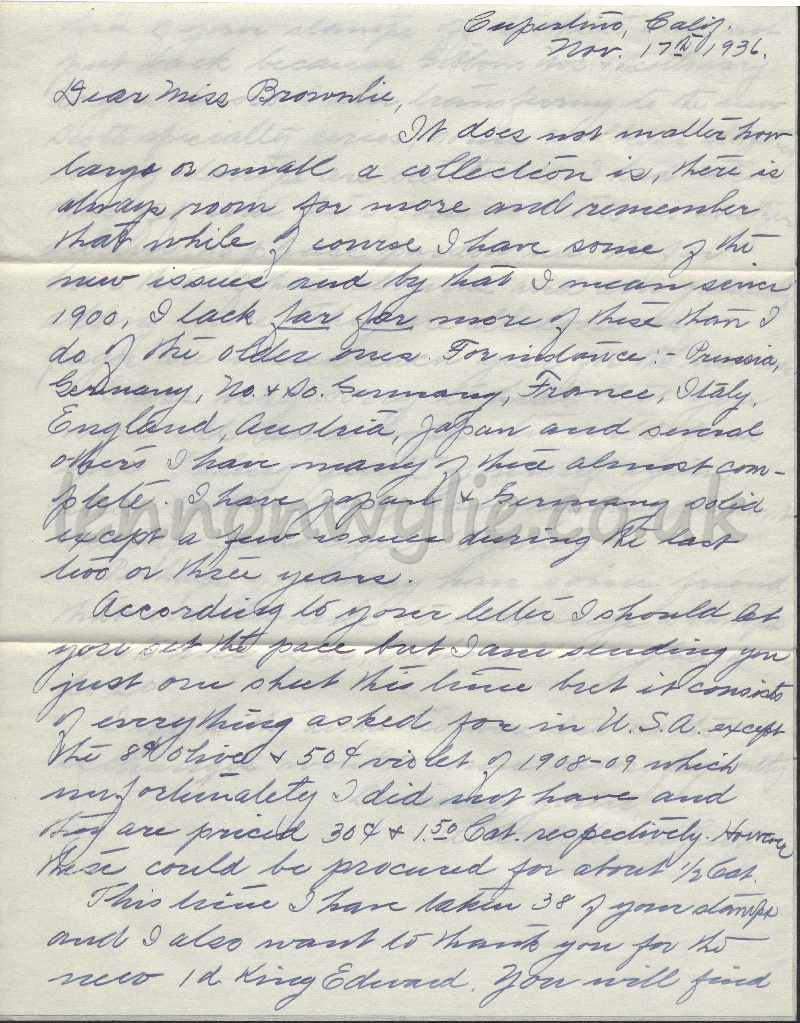 Cupertino, Calif.
Nov. 17th 1936.
Dear Miss Brownlie,
It does not matter how
large or small a collection is, there is
always room for more and remember
that while of course I have some of the
new issues and by that I mean since
1900, I lack far far more of these than I
do of the older ones. For instance:- Prussia,
Germany, No. & So. Germany, France, Italy,
England, Austria, Japan and several
others I have many of these almost com-
plete. I have Japan & Germany solid
except a few issues during the last
two or three years.
According to your letter I should let
you set the pace but I am sending you
just one sheet this time but it consists
of everything asked for in U.S.A. except
the 8¢ olive & 50¢ violet of 1908-09 which
unfortunately I did not have and
they are priced 30¢ & 1.50 Cat. respectively. However
these could be procured for about 1/2 Cat.
This time I have taken 38 of your stamps
and I also want to thank you for the
new 1d. King Edward. You will find
lennonwylie.co.uk